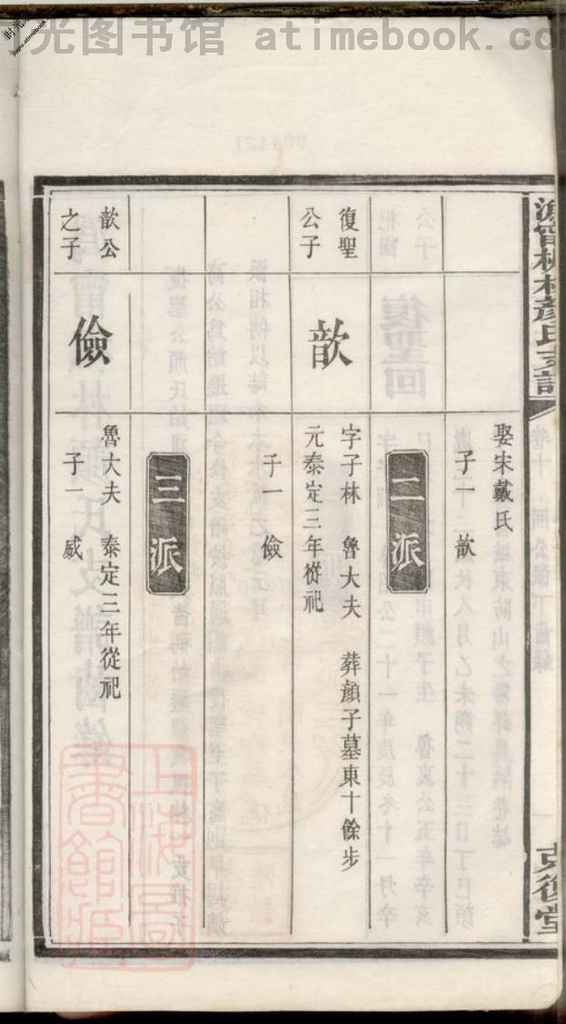 光图书馆 atimebook.co
卷十
克復堂
娶宋戴氏
子一 歆
二派
復聖公子
歆
字子林 魯大夫 葬顔子墓東十餘步
元泰定三年從祀
子一 儉
三派
歆公之子
儉
魯大夫 泰定三年從祀
子一 威
上海圖書館藏